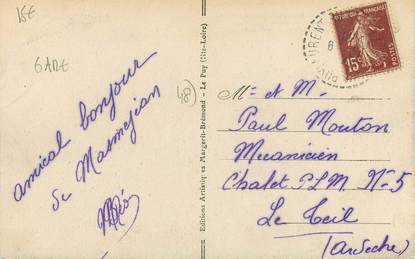 15E
GARE
48
amical bonjour
de Masméjean
Editions Artistiques Margerit-Brémond - Le Puy (Hte-Loire)
LAUREN
REPUBLIQUE FRANCAISE
15c
POSTES
Mr et Me
Paul Mouton
Mecanicien
Chalet PLM No 5
Le Teil
(Ardeche)